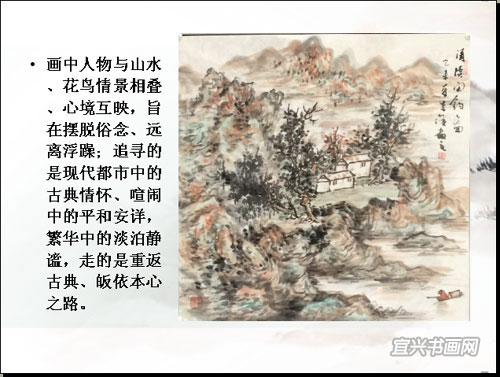 • 画中人物与山水
、花鸟情景相叠
、心境互映，旨
在摆脱俗念、远
离浮躁；追寻的
是现代都市中的
古典情怀、喧闹
中的平和安详，
繁华中的淡泊静
谧，走的是重返
古典、皈依本心
之路。
宜兴书画网